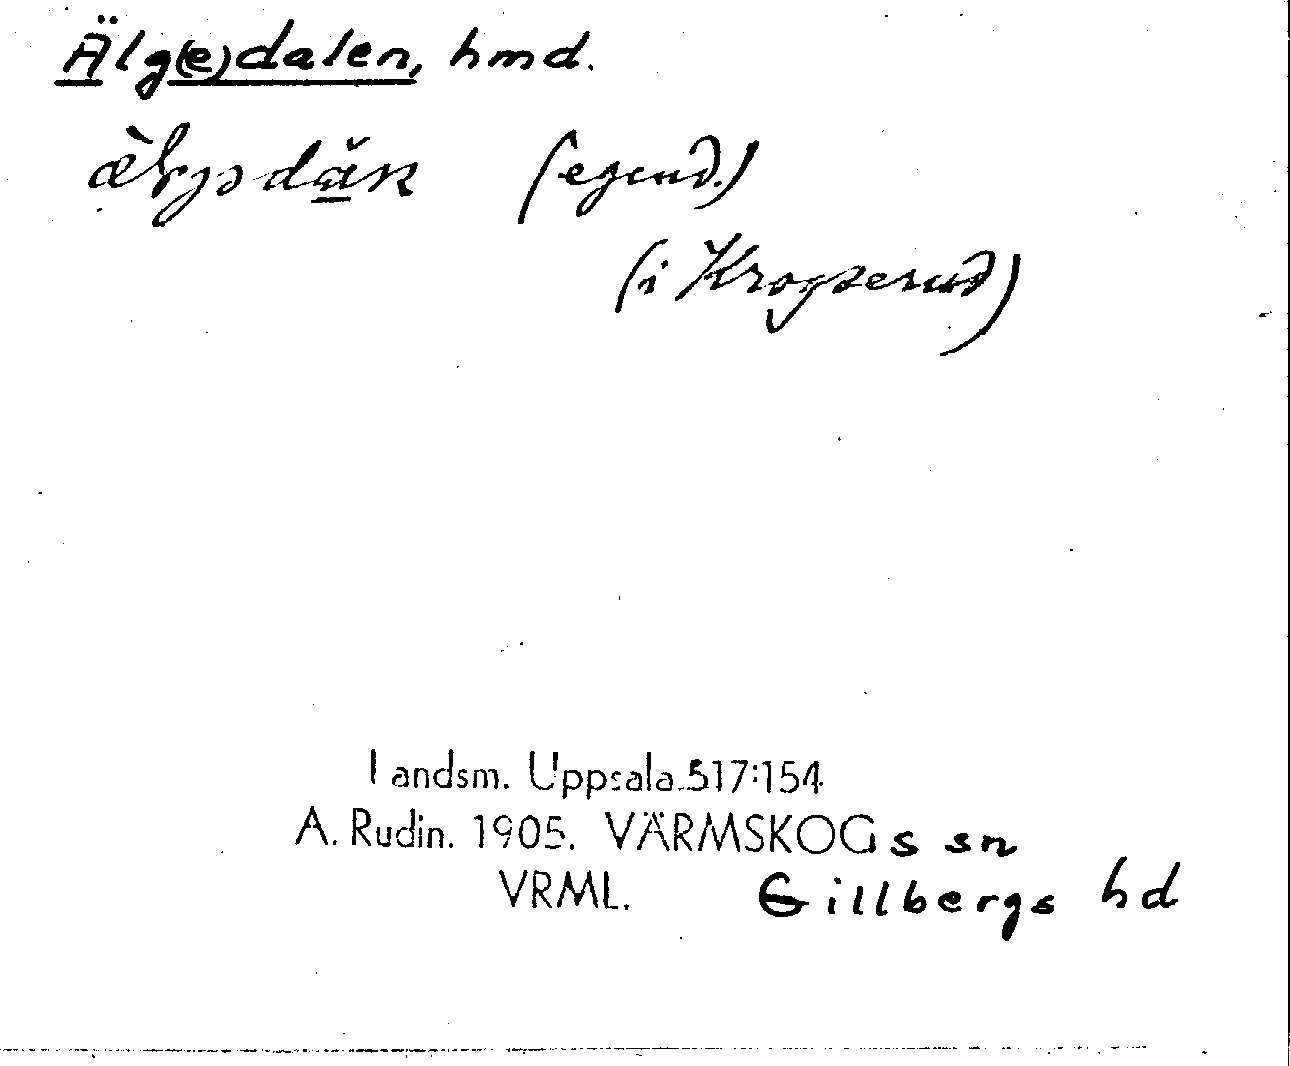 Älg(e)dalen, hmd.
(egend.)
(i Krogserud)
Landsm. Uppsala 517:154
A. Rudin. 1905. VÄRMSKOGs sn
VRML. Gillbergs hd